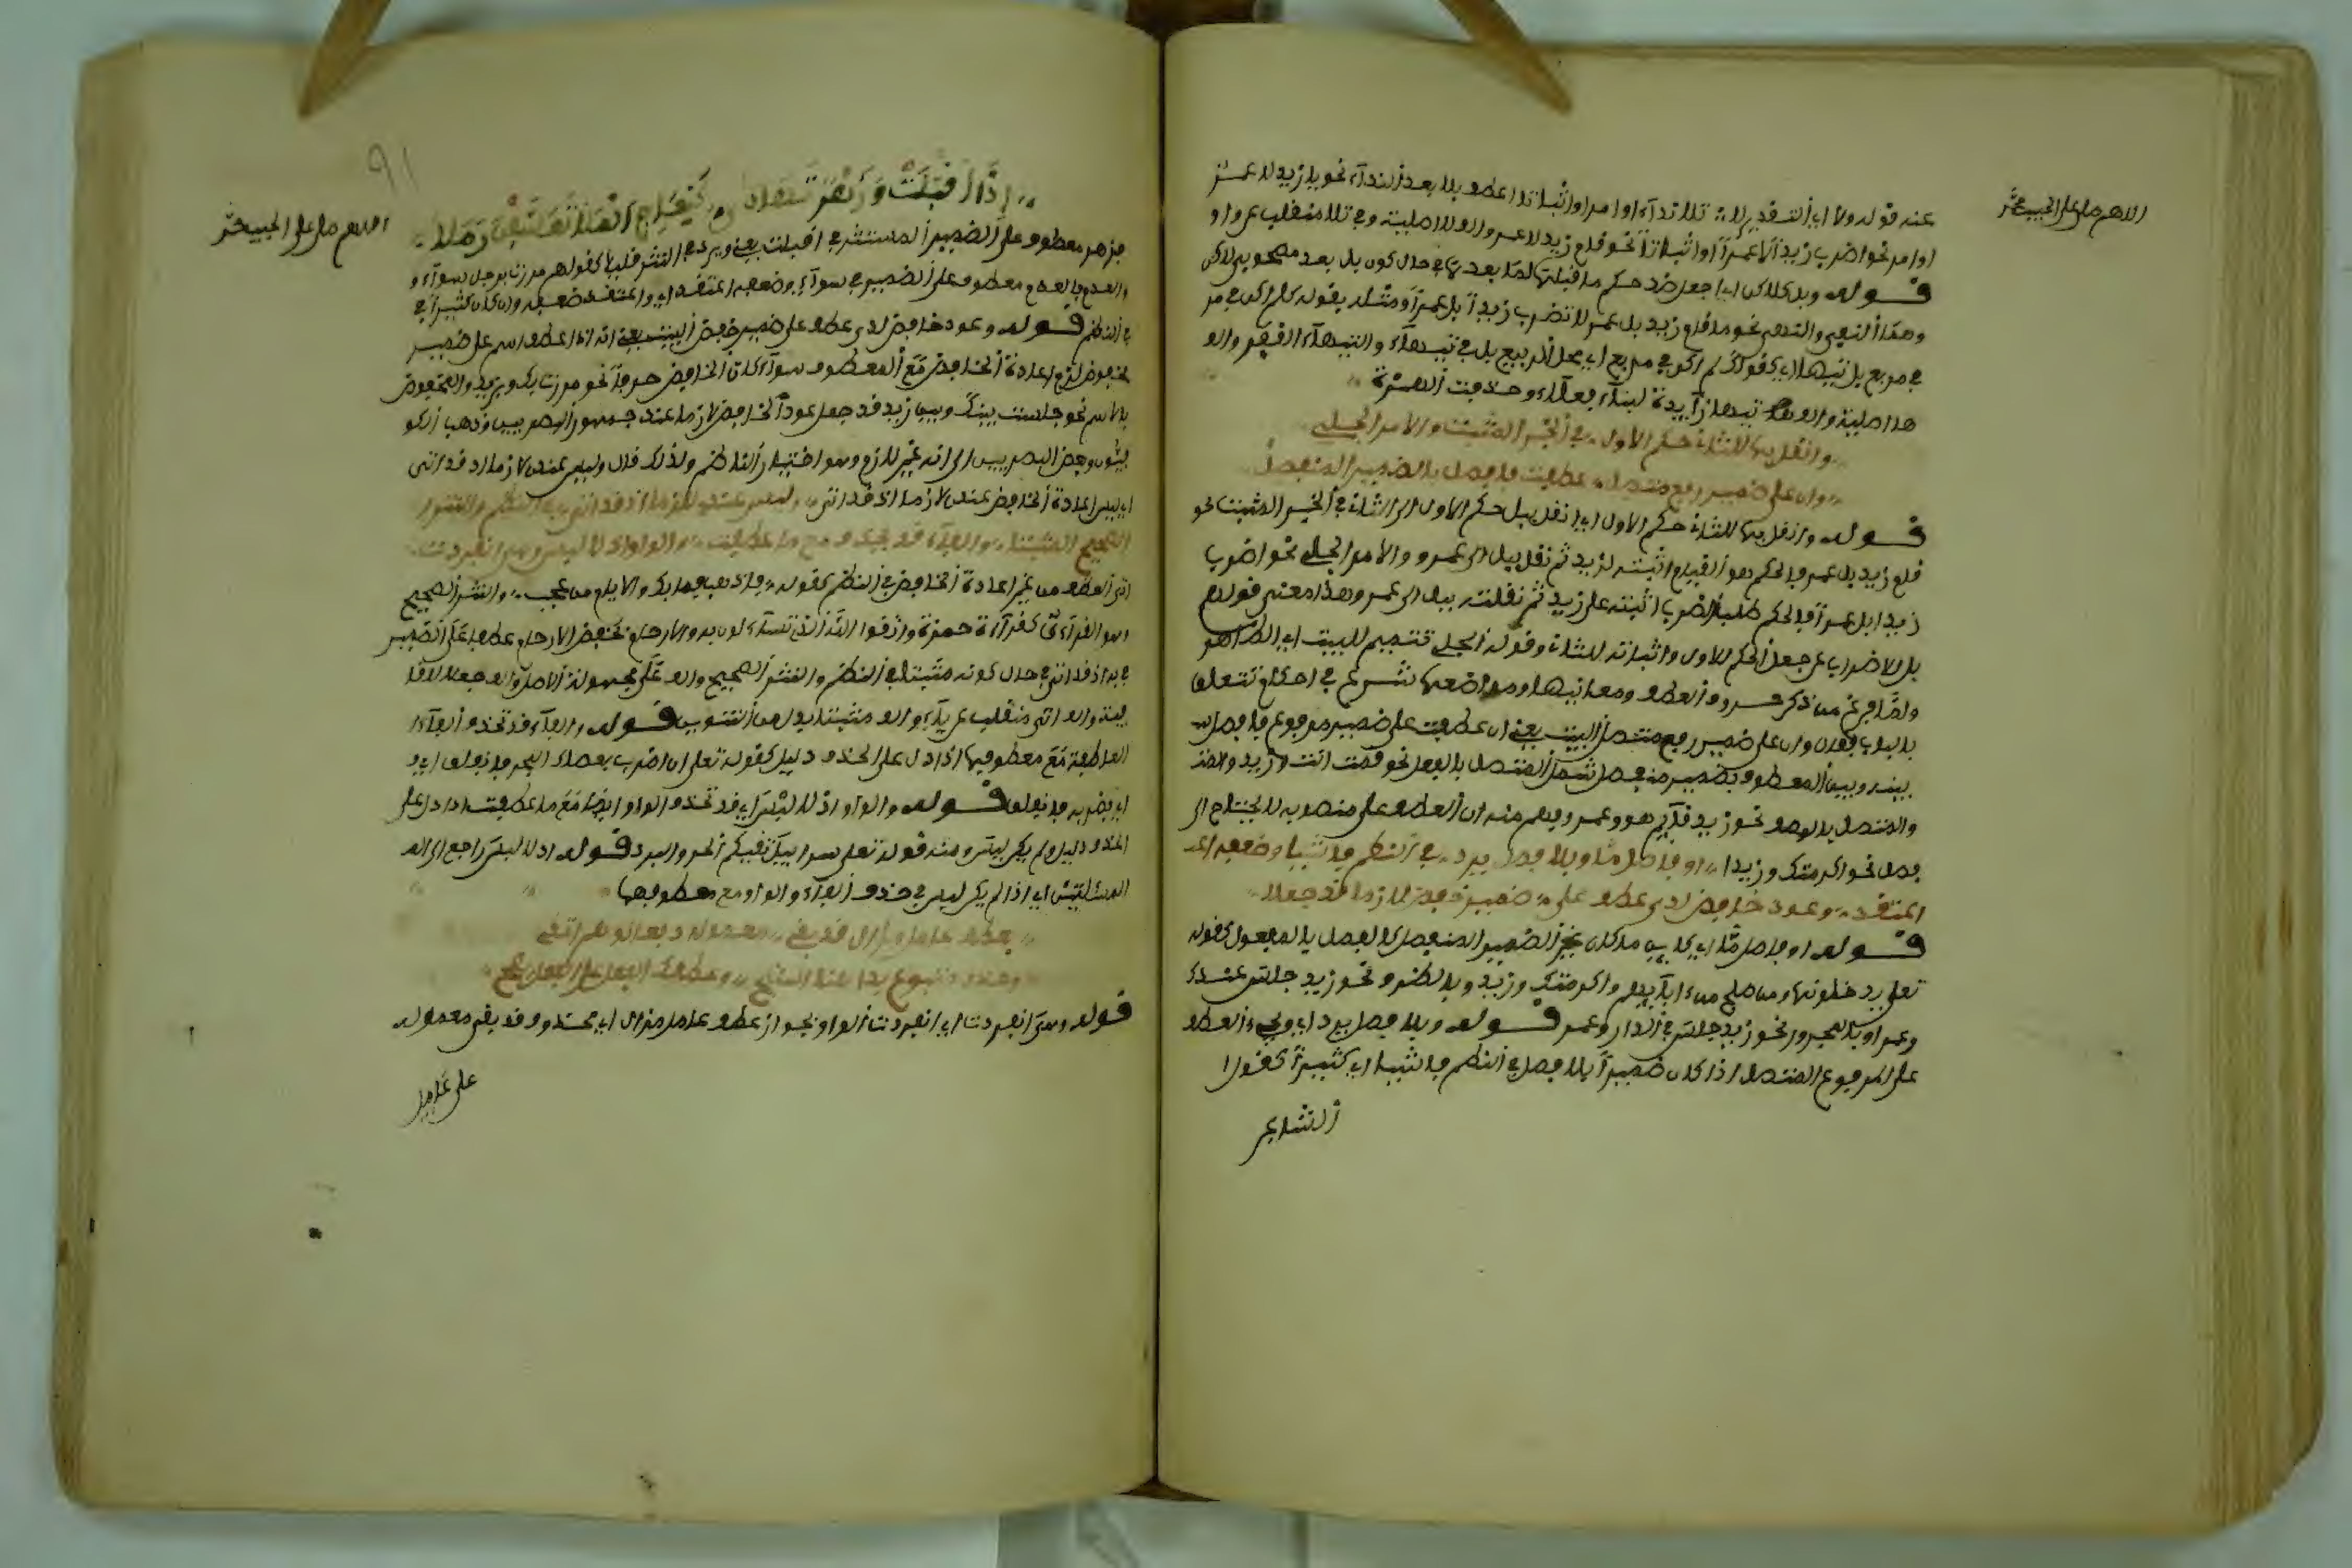 اللهم صل على الحبيب محمد
عنه قوله ولا اي التقدير لا تلا نداء او امرا او اثباتا تلا اعطف بلا بعد النداء نحو يا زيد لا عمر
او امر نحو اضرب زيدا لا عمرا او اثباتا نحو قام زيد لا عمرو
قوله وبل كلاكن اي اجعل ضد حكم ما قبلها لما بعدها في حال كون بل بعد مصحوبي لاكن
وهما النفي والنهي نحو ما قام زيد بل عمر لا تضرب زيدا بل عمرا ومثله بقوله كلم اكن في مر
في مربع بل تيها اي كقولك لم اكن في مربع اي محل الربيع بل في تيهاء والتيهاء القفر
تيها زايدة لبناء فعلاء وحذفت الهمزة
وانقل بها للثان حكم الاول في الخبر المثبت والامر الجلي
وان على ضمير رفع متصل عطفت فافصل بالضمير المنفصل
قوله وانقل بها للثان حكم الاول اي انقل ببل حكم الاول الى الثان في الخبر المثبت نحو
قام زيد بل عمر فالحكم هو القيام اثبته لزيد ثم نقل ببل الى عمرو والامر الجلي نحو اضرب
زيدا بل عمرا فالحكم طلب الضرب اثبته على زيد ثم نقلته ببل الى عمر وهذا معنى قولهم
بل للاضراب عن جعل الحكم للاول واثباته للثان وقوله الجلي تتميم للبيت اي الظاهر
ولما فرغ من ذكر حروف العطف ومعانيها ومواضعها شرع في احكام تتعلق
بالباب فقال وان على ضمير رفع متصل البيت يعني ان عطفت على ضمير مرفوع فافصل
بينه وبين المعطوف بضمير منفصل شمل المتصل بالفعل نحو قمت انت وزيد
والمتصل بالوصف نحو زيد قايم هو وعمر وفهم منه ان العطف على منصوبه لا يحتاج الى
فصل نحو اكرمتك وزيدا او فاصل ما وبلا فصل يرد في النظم فاشيا وضعفه اعتـ
اعتقد وعود خافض لدى عطف على ضمير خفض لازما قد جعلا
قوله او فاصل ما اي كاين ما كان غير الضمير المنفصل كالفصل بالمفعول كقوله
تعلى يدخلونها ومن صلح من ءابايهم واكرمتك وزيد وبالظرف نحو زيد جلس عندك
وعمر او بالمجرور نحو زيد جلس في الدار وعمر قوله وبلا فصل يرد اي ويجيء العطف
على المرفوع المتصل اذا كان ضميرا بلا فصل في النظم فاشيا اي كثيرا كقول
الشاعر
91
اللهم صل على الحبيب محمد
اذا اقبلت وزهر تهادى كنعاج الفلا تعسفن رملا
فزهر معطوف على الضمير المستتر في اقبلت يعني ويرد في النثر قليلا كقولهم مررت برجل سواء و
والعدم فالعدم معطوف على الضمير في سواء وضعفه اعتقد اي واعتقد ضعفه وان كان كثيرا في
في النظم قوله وعود خافض لدى عطف على ضمير خفض البيت يعني انه اذا عطف اسم على ضمير
مخفوض لزم اعادة الخافض مع المعطوف سواء كان الخافض حرفا نحو مررت بك وبزيد والمخفوض
بالاسم نحو جلست بينك وبين زيد قد جعل عود الخافض لازما عند جمهور البصريين وذهب الكو
فيون وبعض البصريين الى انه غير لازم وهو اختيار الناظم ولذلك قال وليس عندي لازما اذ قد اتى
اي ليس اعادة الخافض عندي لازما اذ قد اتى وليس عندي لازما اذ قد اتى في النظم والنثر
الصحيح مثبتا والفاء قد تحذف مع ما عطفت والواو اذ لا لبس وهي انفردت
اتى العطف من غير اعادة الخافض في النظم كقوله فاذهب فما بك والايام من عجب والنثر الصحيح
وهو القرءان كقراءة حمزة واتقوا الله الذي تساءلون به والارحام بخفض الارحام عطفا على الضمير
في به اذ قد اتى في حال كونه مثبتا في النظم والنثر الصحيح
مثبتا بدل من التنوين قوله والفاء قد تحذف الفاء
العاطفة مع معطوفها اذا دل على الحذف دليل كقوله تعلى ان اضرب بعصاك البحر فانفلق اي
اي فضربه فانفلق قوله والواو اذ لا لبس اي قد تحذف الواو ايضا مع ما عطفت اذا دل على
الحذف دليل ولم يكن لبس ومنه قوله تعلى سرابيل تقيكم الحر والبرد قوله اذ لا لبس راجع الى
المسئلتين اي اذا لم يكن لبس في حذف الفاء والواو مع معطوفها
بعطف عامل مزال قد بقي معموله دفعا لوهم اتقي
وحذف متبوع بدا هنا استبح وعطفك الفعل على الفعل يصح
قوله وهي انفردت اي انفردت الواو بجواز عطف عامل مزال اي محذوف وقد بقي معموله
على عامل